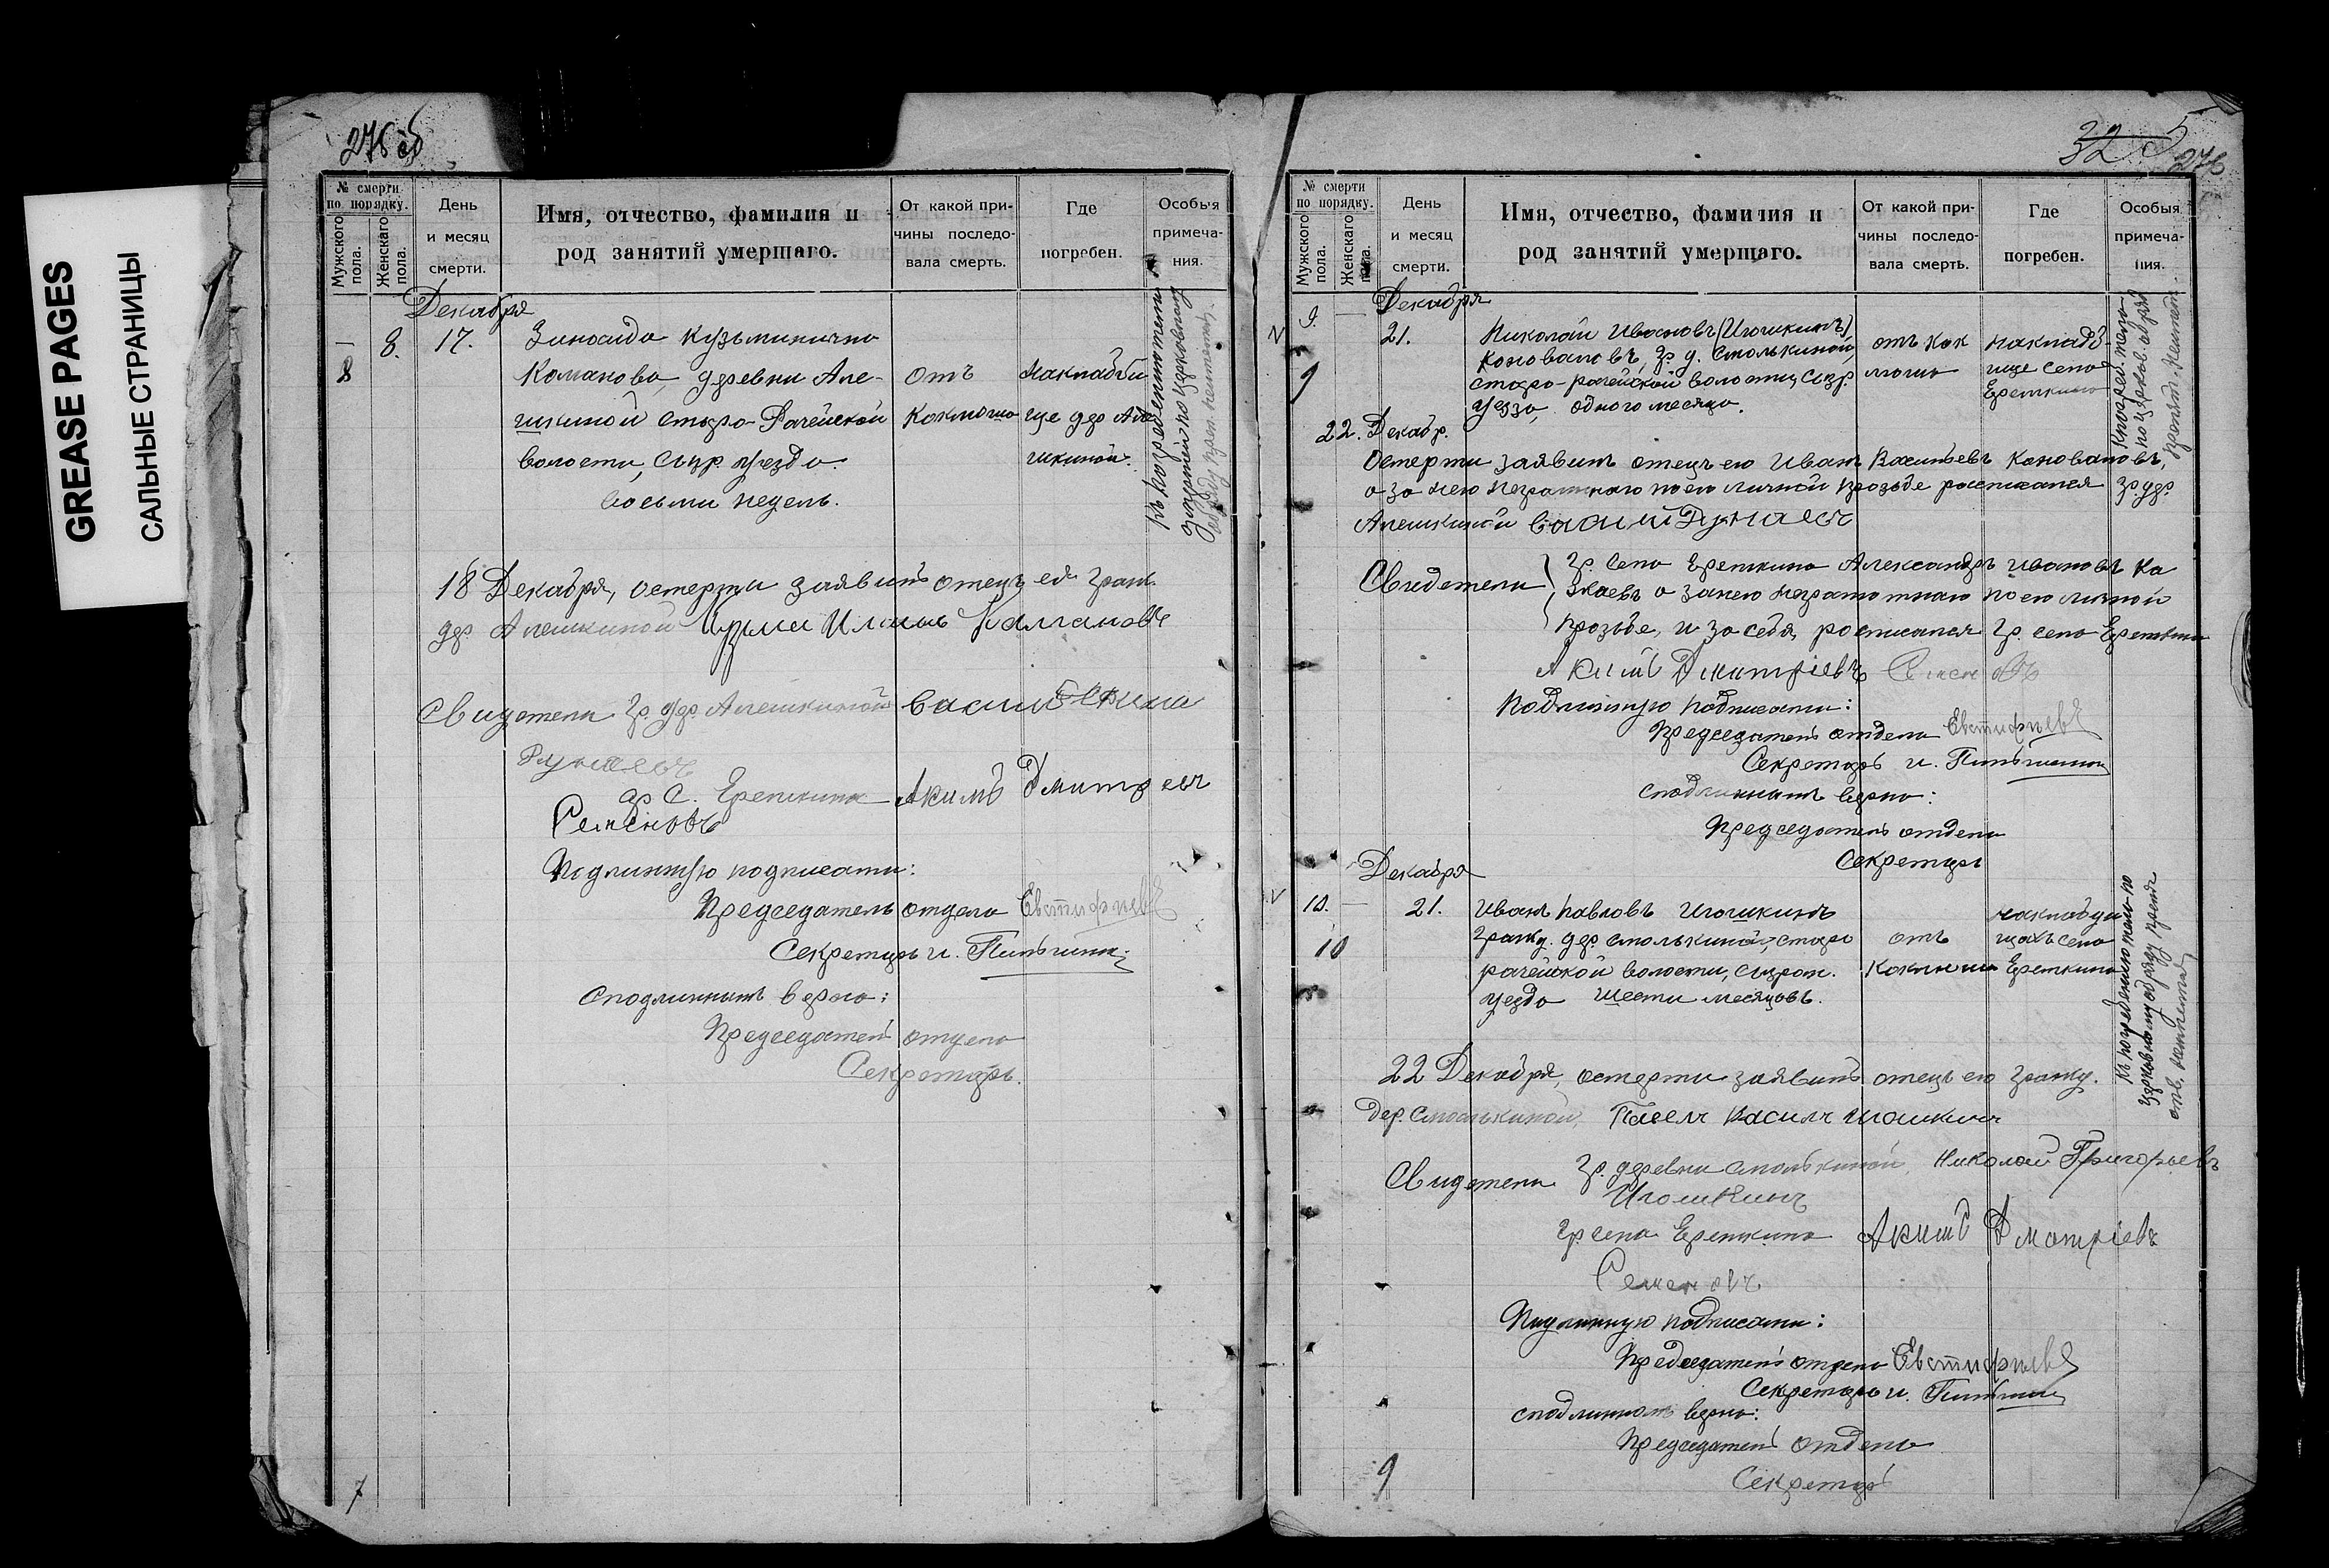 GREASE PAGES
САЛЬНЫЕ СТРАНИЦЫ
276 об
№ смерти по порядку.
Мужского пола.
Женскаго пола.
День и месяц смерти.
Имя, отчество, фамилия и род занятий умершаго.
От какой причины последовала смерть.
Где погребен.
Особыя примечания.
Декабря
8
8.
17.
Зиноида Кузьминична
деревни Але-
шкиной Старо-Рачейской
волости, Сызр. уезда.
восьми недель.
отъ
коклюша
на кладби
ще дер Але
шкиной.
18 Декабря, о смерти заявилъ отец ея граж.
дер. Алешкиной
Свидетели Гр. дер. Алешкиной Василий
Дунаевъ
гр С. Ерепкина Акимъ Дмитревъ
Семеновъ
Подлинную подписали:
Председатель отдела Евстифиевъ
Секретарь и.
С подлинным верно:
Председатель отдела
Секретарь.
7
32 5
276
№ смерти по порядку.
Мужского пола.
Женскаго пола.
День и месяц смерти.
Имя, отчество, фамилия и род занятий умершаго.
От какой причины последовала смерть.
Где погребен.
Особыя примечания.
Декабря
9.
9
21.
Николай Ивановъ (Игошкинъ)
Коноваловъ, гр. д. Смолькиной,
старо-рачейской волости, Сызр.
уезда, одного месяца.
отъ кок
люша
на кладб-
ище села
Ерепкина
22. Декабр.
О смерти заявилъ отец его Иванъ Васильевъ Коноваловъ,
а за него неграмотнаго по его личной прозьбе росписался гр. дер.
Алешкиной Василий Дунаевъ
Свидетели
Гр. села Ерепкина Александръ Ивановъ Ка
заевъ а за него неграмотнаго по его личной
прозьбе, и за себя, росписался Гр. села Ерепкина
Акимъ Дмитріевъ Семеновъ
Подлинную подписали:
Председатель отдела Евстифиевъ
Секретарь и.
С подлинным верно:
Председатель отдела
Секретарь
Декабря
10.
10
21.
Иванъ Павловъ Игошкинъ
гражд. дер. Смолькиной, старо
рачейской волости, Сызран.
уезда шести месяцовъ.
отъ
коклюша
на кладби
щахъ села
Ерепкина
22 Декабря, о смерти заявилъ отецъ его гражд.
дер. Смолькиной, Павелъ Василъ Игошкинъ
Свидетели Гр. деревни Смолькиной, Николай Григорьевъ
Игошкинъ
Гр села Ерепкина Акимъ Дмитріевъ
Семеновъ
Подлинную подписали:
Председатель отдела Евстифиевъ
Секретарь и.
С подлинным верно:
Председатель отдела
Секретарь
9